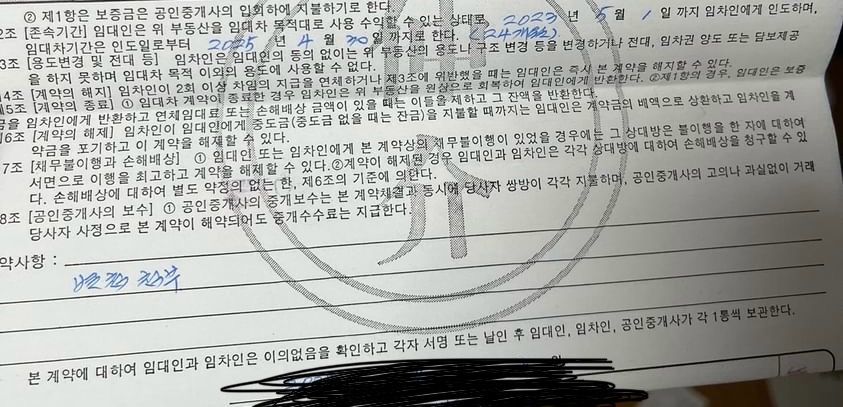 ② 제1항은 보증금은 공인중개사의 입회하에 지불하기로 한다.
2조 [존속기간] 임대인은 위 부동산을 임대차 목적대로 사용 수익할 수 있는 상태로, 2023 년 5 월 1 일 까지 임차인에게 인도하며,
임대차기간은 인도일로부터 2025 년 4 월 30 일 까지로 한다. (24개월)
3조 [용도변경 및 전대 등] 임차인은 임대인의 동의 없이는 위 부동산의 용도나 구조 변경 등을 변경하거나 전대, 임차권 양도 또는 담보제공
을 하지 못하며 임대차 목적 이외의 용도에 사용할 수 없다.
4조 [계약의 해지] 임차인이 2회 이상 차임의 지급을 연체하거나 제3조에 위반했을 때는 임대인은 즉시 본 계약을 해지 할 수 있다.
5조 [계약의 종료] ① 임대차 계약이 종료한 경우 임차인은 위 부동산을 원상으로 회복하여 임대인에게 반환한다. ②제1항의 경우, 임대인은 보증
금을 임차인에게 반환하고 연체임대료 또는 손해배상 금액이 있을 때는 이들을 제하고 그 잔액을 반환한다.
6조 [계약의 해제] 임차인이 임대인에게 중도금(중도금 없을 때는 잔금)을 지불할 때까지는 임대인은 계약금의 배액으로 상환하고 임차인을 계
약금을 포기하고 이 계약을 해제할 수 있다.
7조 [채무불이행과 손해배상] ① 임대인 또는 임차인에게 본 계약상의 채무불이행이 있었을 경우에는 그 상대방은 불이행을 한 자에 대하여
서면으로 이행을 최고하고 계약을 해제할 수 있다.②계약이 해제된 경우 임대인과 임차인은 각각 상대방에 대하여 손해배상을 청구할 수 있
다. 손해배상에 대하여 별도 약정의 없는 한, 제6조의 기준에 의한다.
8조 [공인중개사의 보수] ① 공인중개사의 중개보수는 본 계약체결과 동시에 당사자 쌍방이 각각 지불하며, 공인중개사의 고의나 과실없이 거래
당사자 사정으로 본 계약이 해약되어도 중개수수료는 지급한다.
약사항 :
별지 첨부
본 계약에 대하여 임대인과 임차인은 이의없음을 확인하고 각자 서명 또는 날인 후 임대인, 임차인, 공인중개사가 각 1통씩 보관한다.